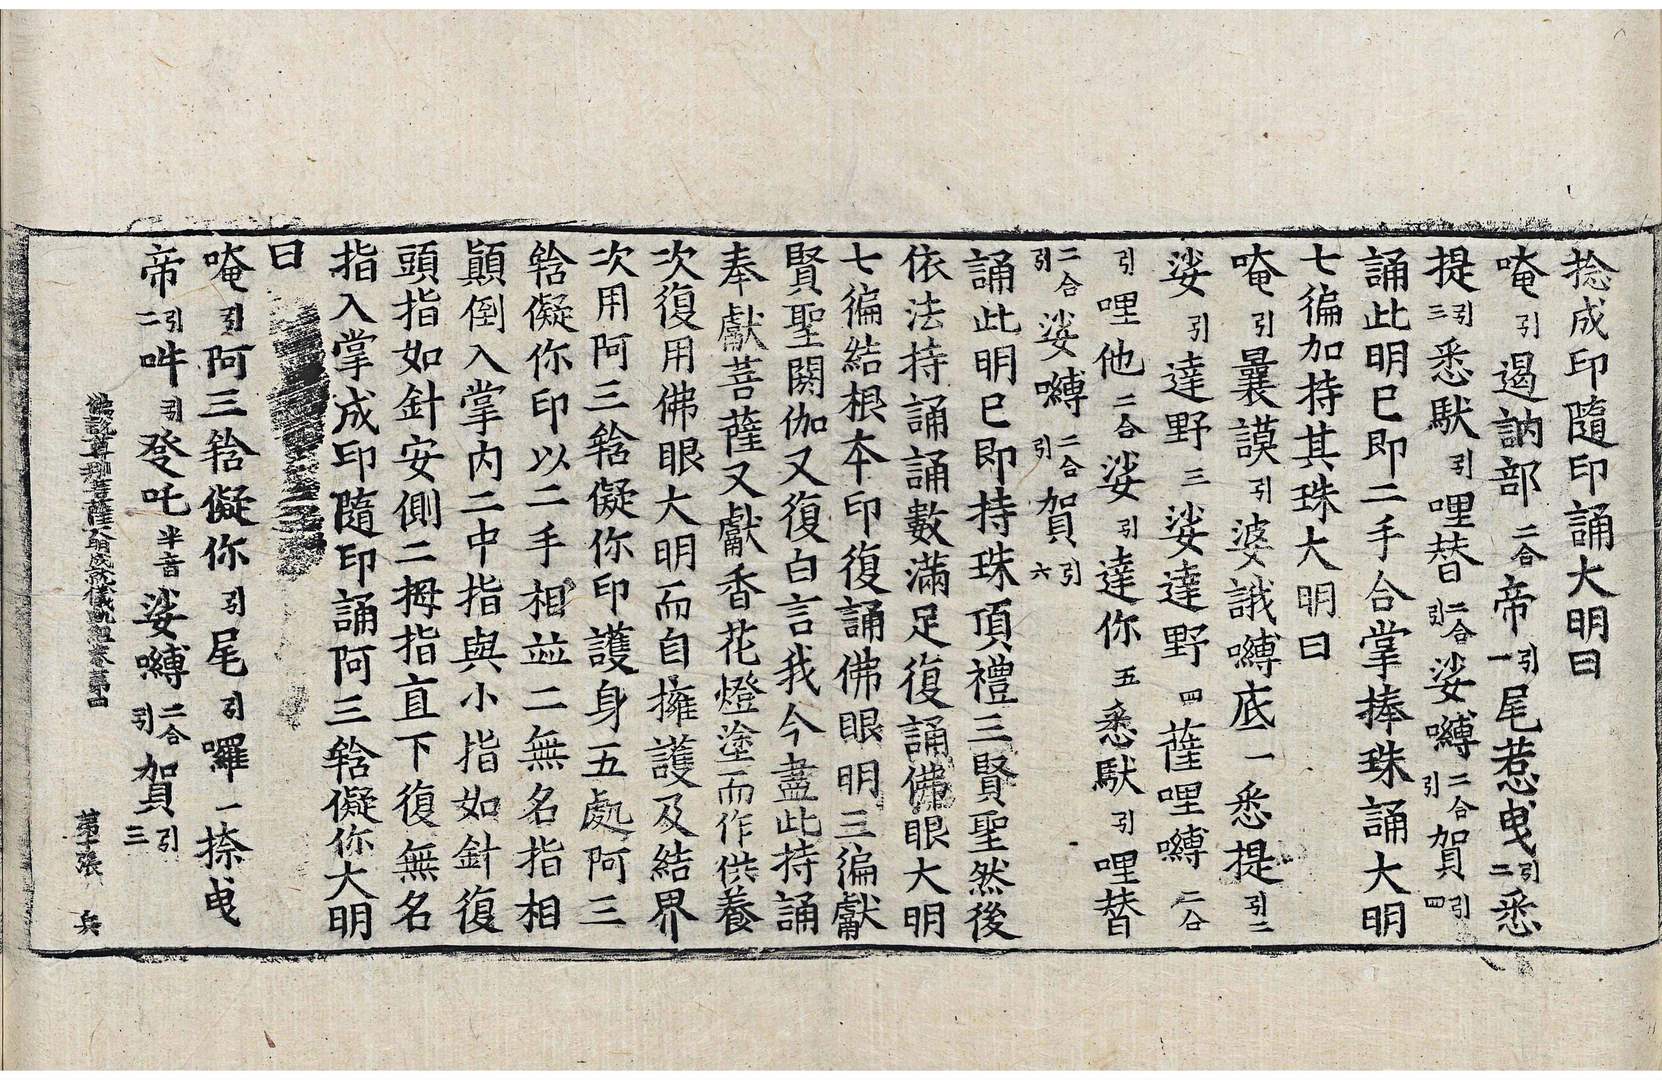 捻成印隨印誦大明曰
唵引遏訥部二合帝引一尾惹曳引二悉
提引三悉馱引哩替二合引娑嚩二合引賀引四
誦此明已即二手合掌捧珠誦大明
七徧加持其珠大明曰
唵引曩謨引婆誐嚩底一悉提引二
娑引達野三娑達野四薩哩嚩二合
引哩他二合娑引達你五悉馱引哩替
二合引娑嚩二合引賀引六
誦此明已即持珠頂禮三賢聖然後
依法持誦誦數滿足復誦佛眼大明
七徧結根本印復誦佛眼明三徧獻
賢聖閼伽又復白言我今盡此持誦
奉獻菩薩又獻香花燈塗而作供養
次復用佛眼大明而自擁護及結界
次用阿三䅈儗你印護身五處阿三
䅈儗你印以二手相並二無名指相
顛倒入掌內二中指與小指如針復
頭指如針安側二拇指直下復無名
指入掌成印隨印誦阿三䅈儗你大明
曰
唵引阿三䅈儗你引尾引囉一捺曳
帝引二吽引登吒半音娑嚩二合引賀引三
佛說尊那菩薩大明成就儀軌經卷第四 第十張 兵